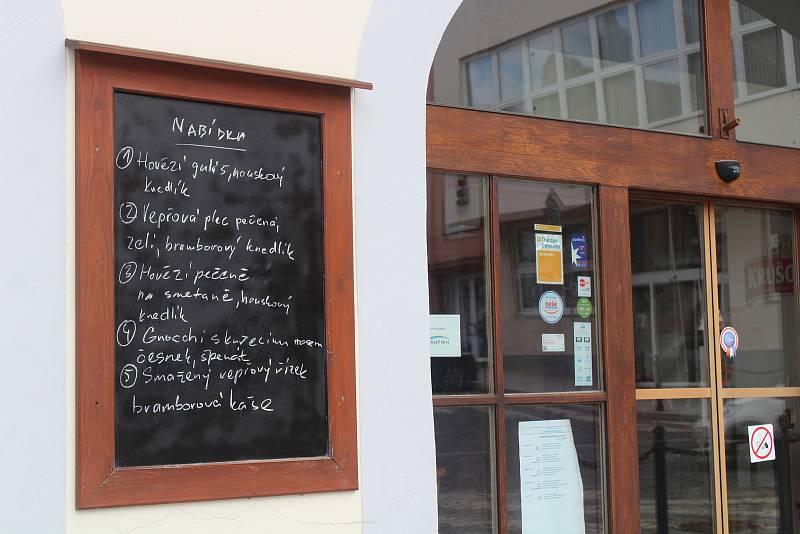 NABÍDKA
① Hovězí guláš, houskový
knedlík
② Vepřová plec pečená,
zelí, bramborový knedlík
③ Hovězí pečeně
na smetaně, houskový
knedlík
④ Gnocchi s kuřecím masem
česnek, špenát
⑤ Smažený vepřový řízek
bramborová kaše
naše